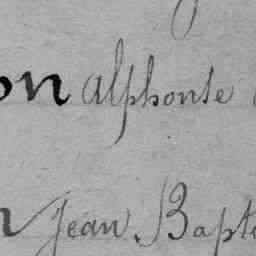 on Alphonse
n Jean Bapt